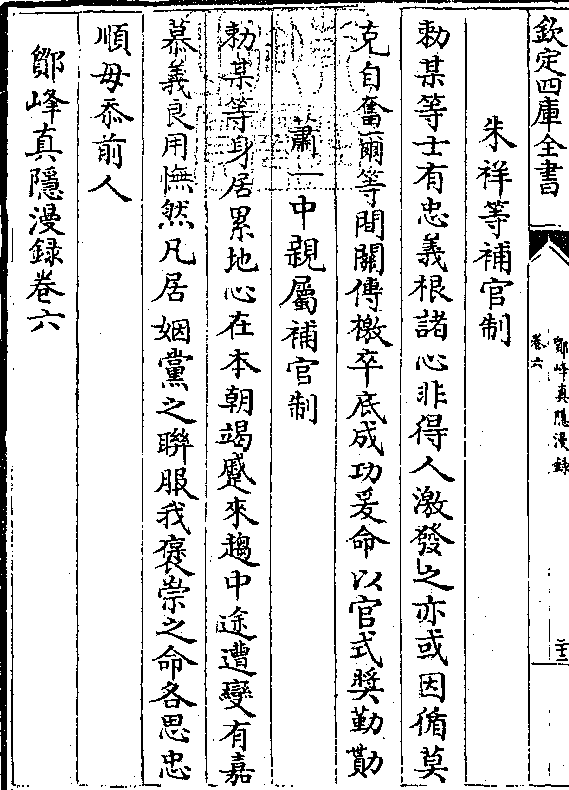 欽定四庫全書
鄮峰真隱漫録
卷六
二十三
朱祥等補官制
勅某等士有忠義根諸心非得人激發之亦或因循莫
克自奮爾等間關傳檄卒底成功爰命以官式奬勤勩
蕭一中親屬補官制
勅某等身居累地心在本朝竭蹷來趨中途遭變有嘉
慕義良用憮然凡居姻黨之聯服我褒崇之命各思忠
順毋忝前人
鄮峰真隱漫録卷六